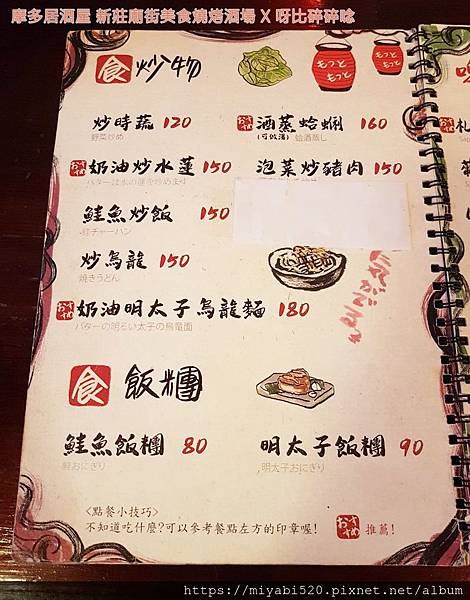 摩多居酒屋 新莊廟街美食燒烤酒場 X 呀比碎碎唸
食 炒物
もっと
もっと
もっと
もっと
炒時蔬 120
野菜炒め
おすすめ 酒蒸蛤蜊 160
(可做湯) 蛤酒蒸し
おすすめ 奶油炒水蓮 150
バターは水の蓮を炒めます
泡菜炒豬肉 150
鮭魚炒飯 150
鮭チャーハン
炒烏龍 150
焼きうどん
おすすめ 奶油明太子烏龍麵 180
バターの明るい太子の烏竜面
食 飯糰
鮭魚飯糰 80
鮭おにぎり
明太子飯糰 90
明太子おにぎり
<點餐小技巧>
不知道吃什麼?可以參考餐點左方的印章喔!
おすすめ 推薦!
https://miyabi520.pixnet.net/album